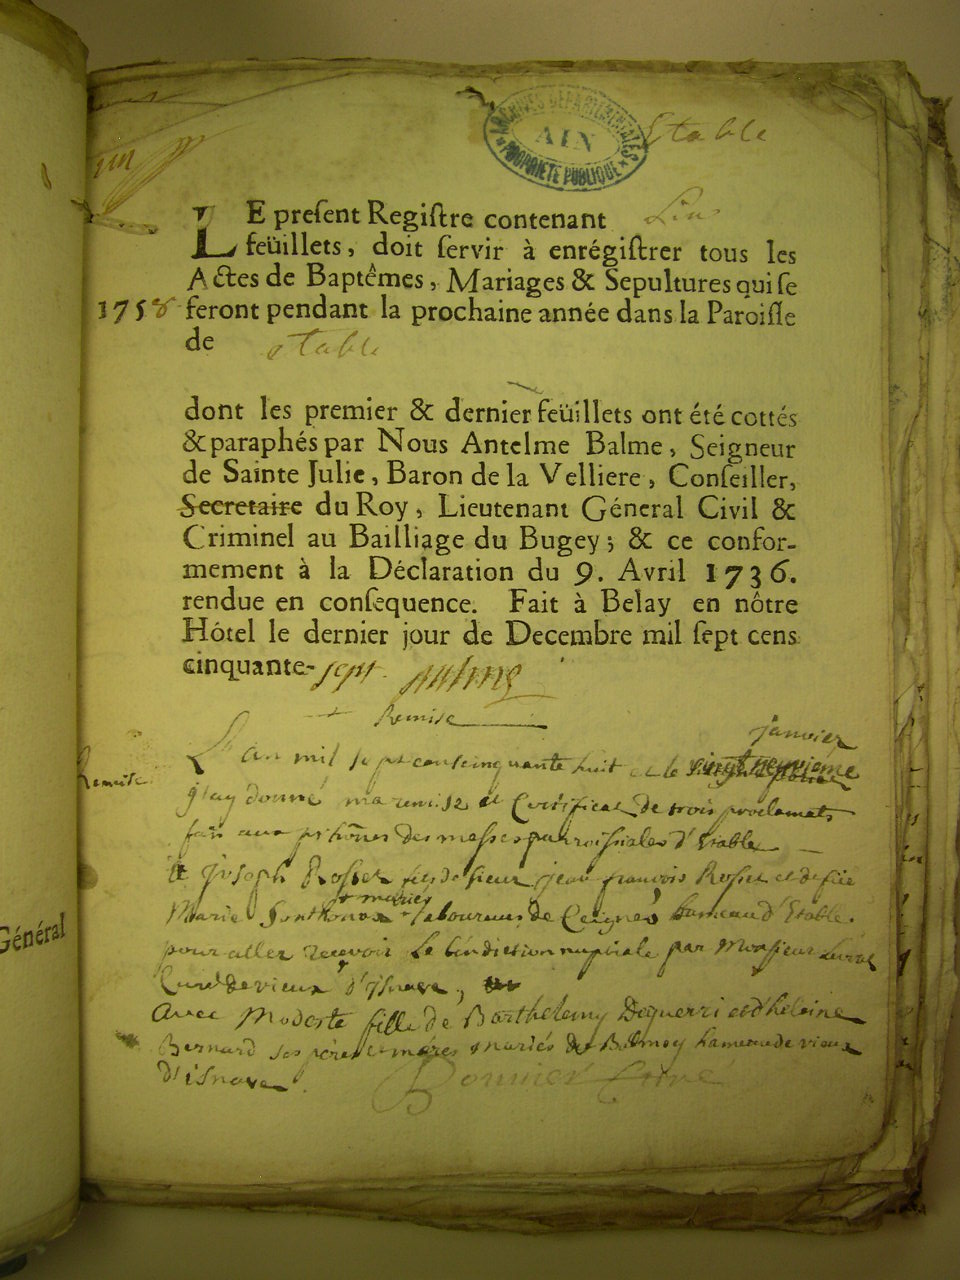 ARCHIVES DEPARTEMENTALES
AIN
PROPRIETE PUBLIQUE
Etable
LE preſent Regiſtre contenant
feüillets, doit ſervir à enrégiſtrer tous les
Actes de Baptêmes, Mariages & Sepultures qui ſe
1758 feront pendant la prochaine année dans la Paroiſſe
de etable
dont les premier & dernier feüillets ont été cottés
& paraphés par Nous Antelme Balme, Seigneur
de Sainte Julie, Baron de la Velliere, Conſeiller,
Secretaire du Roy, Lieutenant Géneral Civil &
Criminel au Bailliage du Bugey; & ce confor-
mement à la Déclaration du 9. Avril 1736.
rendue en conſequence. Fait à Belay en nôtre
Hôtel le dernier jour de Decembre mil ſept cens
cinquante-sept. Balme
Remise
janvier
Remise
L'an mil sept cens cinquante huit et le vingt neuvieme
j'ay donné ma remise et Certificat de trois proclamats
fait aux prônes des messes parroissiales d'Etable
a Joseph Rosset fils de sieur jean françois Rosset et de füe
+ mariés
Marie + laboureur de Ceignes hameau d'Etable.
pour aller recevoir la bénédiction nuptiale par Monsieur
Curé de vieux d'isnave,
Avec Modeste fille de Barthelemy Deguerri et d'heleine
Bernard ses père et mères mariés de hameau de vieux
d'isnave.
Bonnier Curé
Général